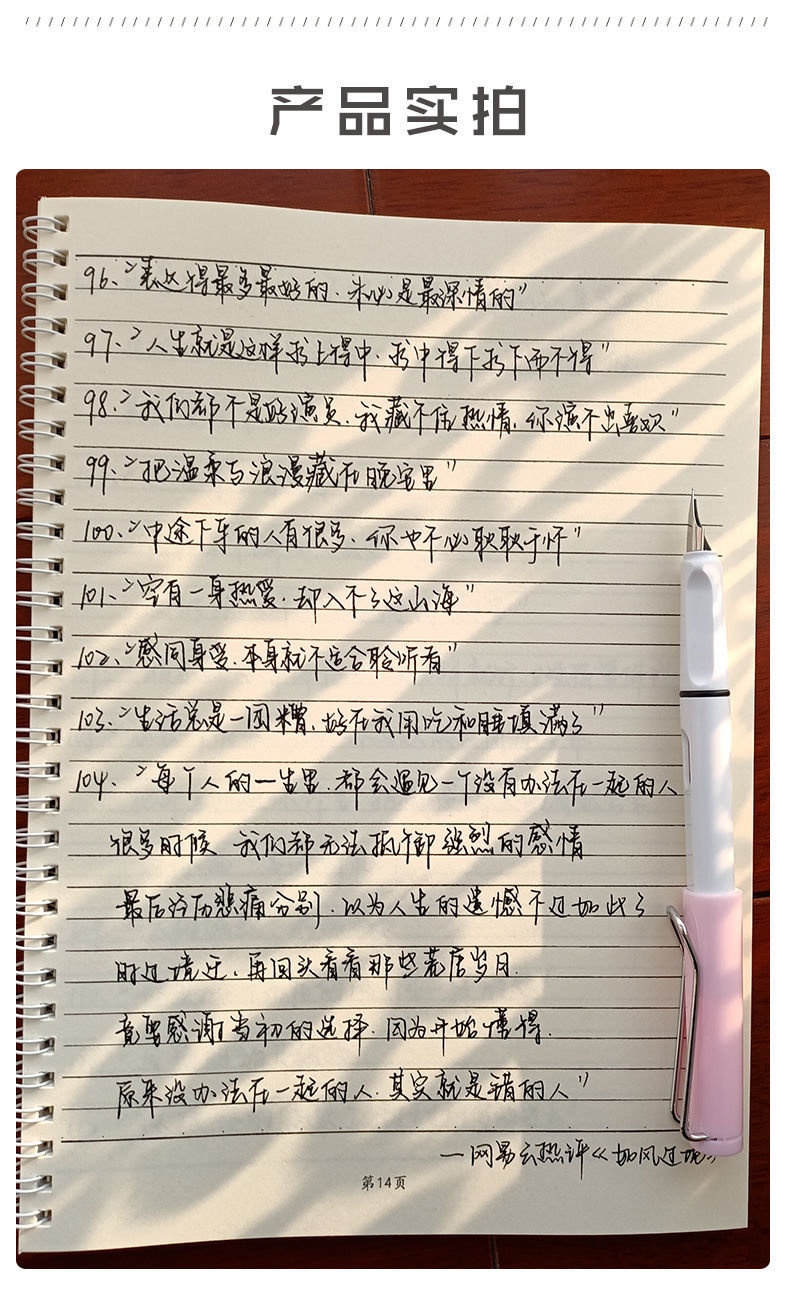 产品实拍
96、“表达得最多最好的、未必是最深情的”
97、“人生就是这样 求上得中、求中得下 求下而不得”
98、“我们都不是好演员、我藏不住热情、你演不出喜欢”
99、“把温柔与浪漫藏在晚安里”
100、“中途下车的人有很多、你也不必耿耿于怀”
101、“空有一身热爱、却入不了这山海”
102、“感同身受、本身就不适合聆听者”
103、“生活总是一团糟、好在我用吃和睡填满了”
104、“每个人的一生里、都会遇见一个没有办法在一起的人
很多时候 我们都无法抵御强烈的感情
最后经历悲痛分别、以为人生的遗憾不过如此了
时过境迁、再回头看看那些荒唐岁月、
竟要感谢当初的选择、因为开始懂得、
原来没办法在一起的人、其实就是错的人”
—网易云热评《如风过境》
第14页